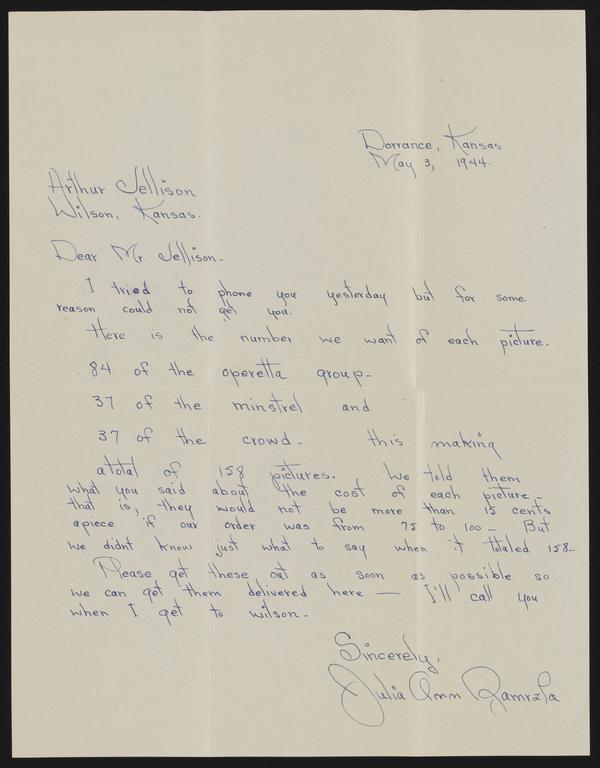 Dorrance, Kansas
May 3, 1944.
Arthur Jellison
Wilson, Kansas.
Dear Mr Jellison-
I tried to phone you yesterday but for some
reason could not get you.
Here is the number we want of each picture.
84 of the operetta group-
37 of the minstrel and
37 of the crowd- this making
a total of 158 pictures. We told them
what you said about the cost of each picture-
that is, they would not be more than 15 cents
apiece if our order was from 75 to 100- But
we didnt know just what to say when it totaled 158-
Please get these out as soon as possible so
we can get them delivered here — I'll call you
when I get to wilson-
Sincerely,
Julia Ann